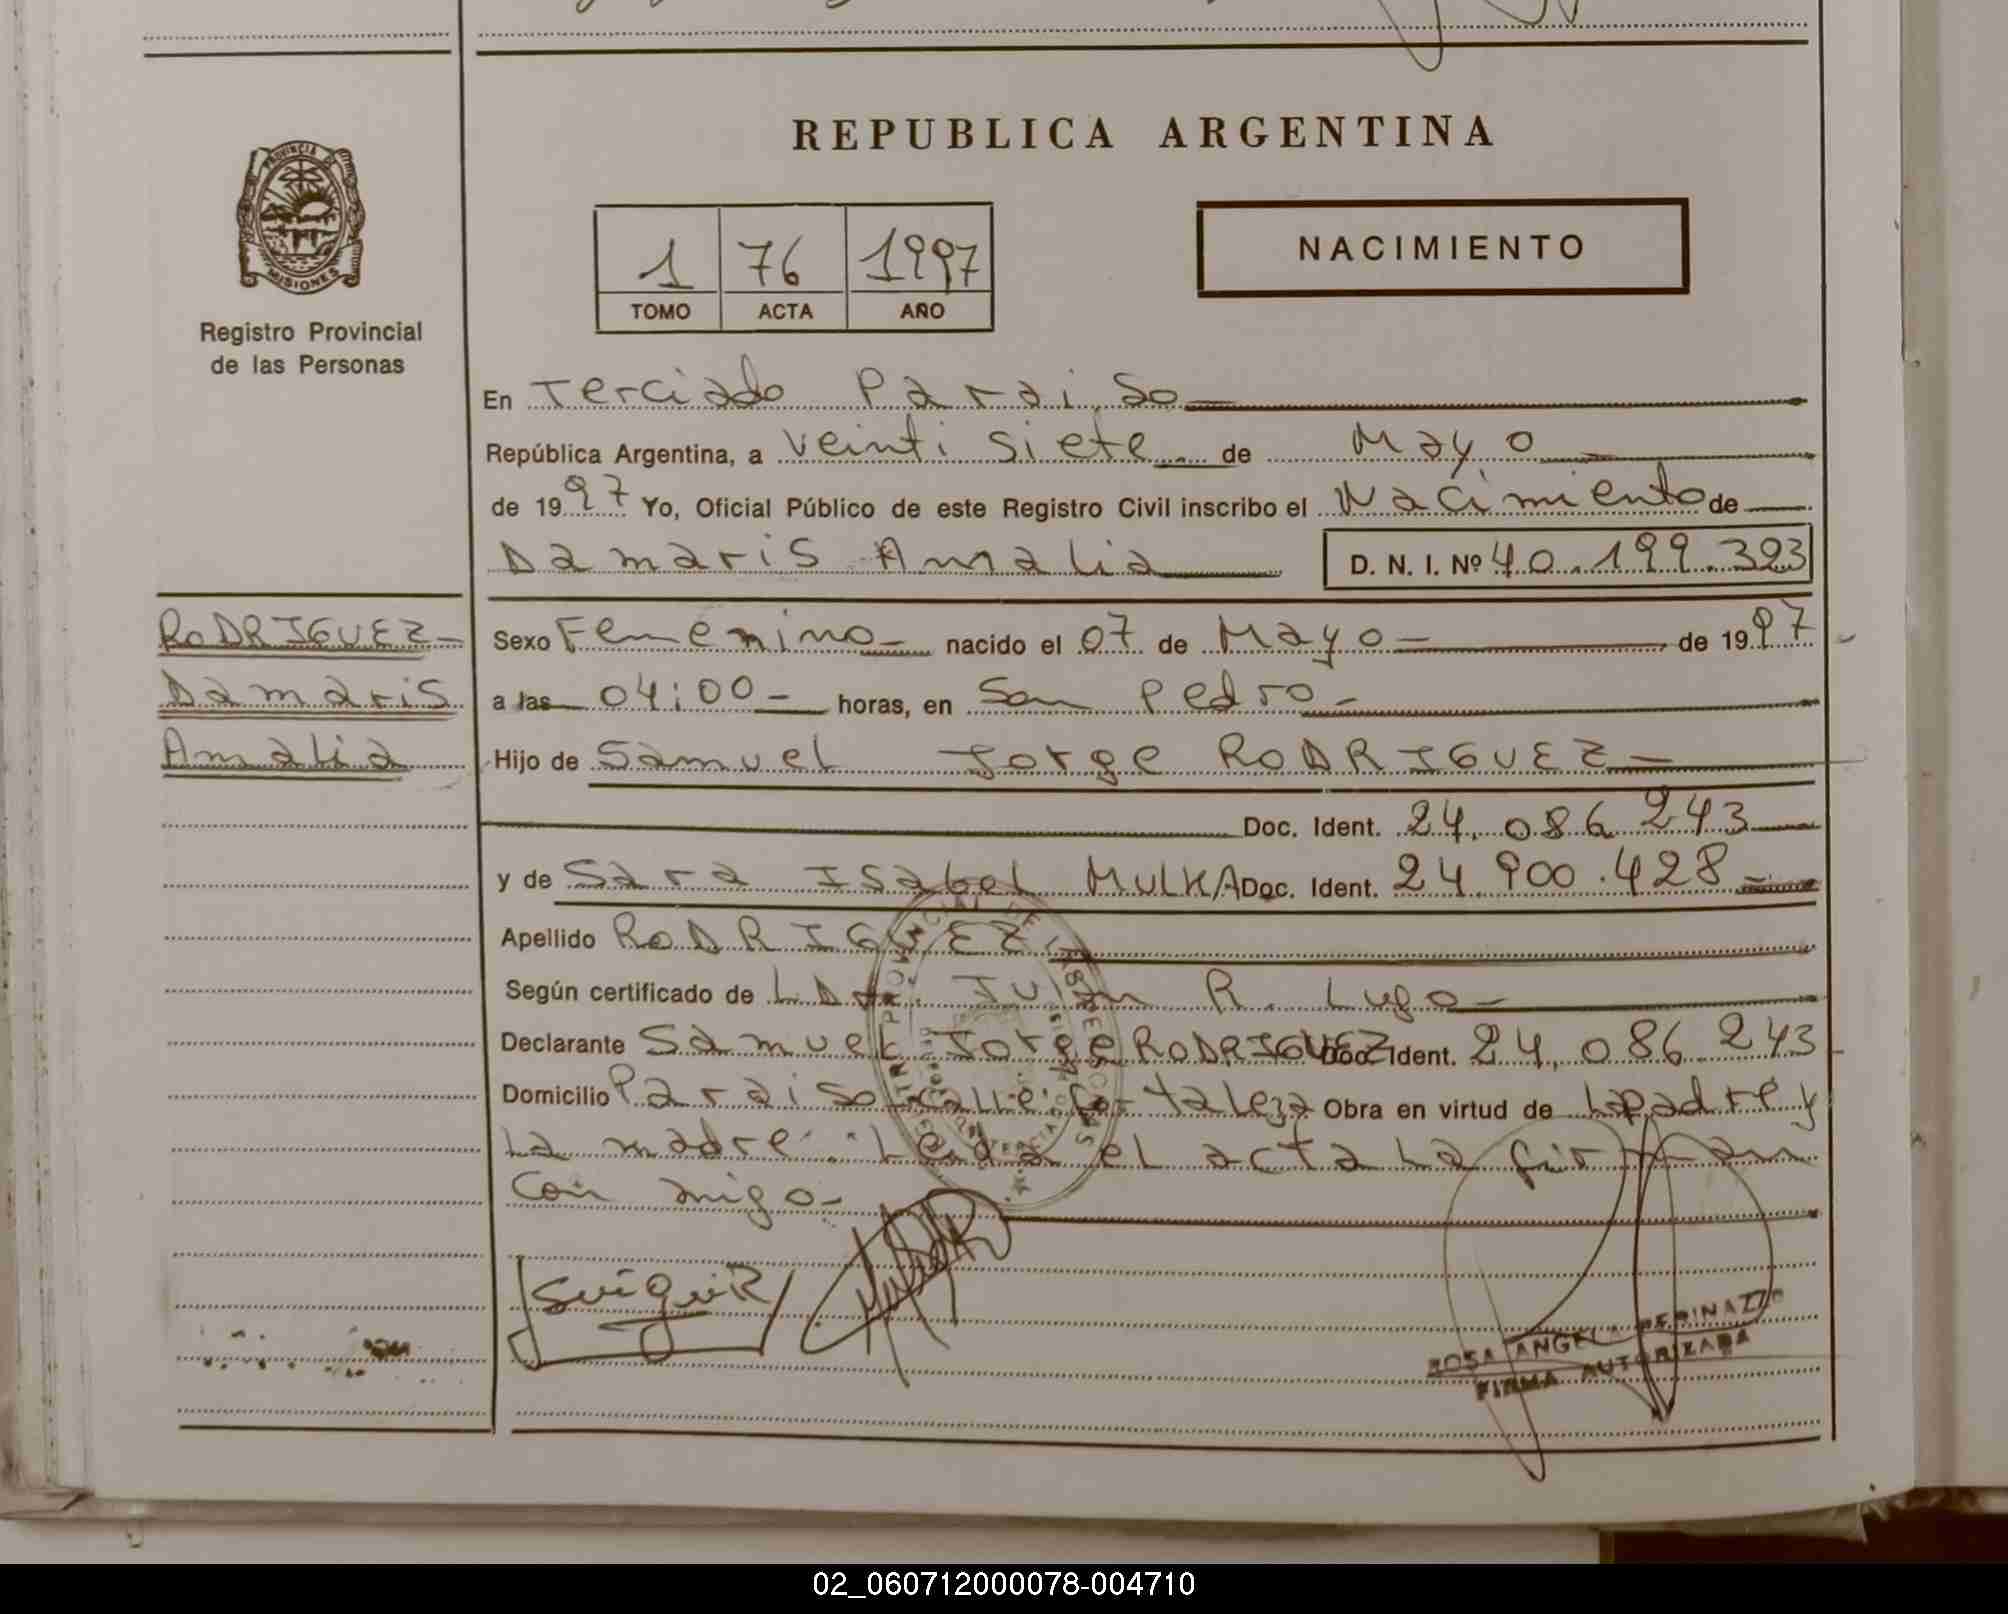 REPUBLICA ARGENTINA
PROVINCIA DE
MISIONES
Registro Provincial
de las Personas
1 76 1997
TOMO ACTA AÑO
NACIMIENTO
En Terciado Paraiso
República Argentina, a veinti siete de Mayo
de 1997 Yo, Oficial Público de este Registro Civil inscribo el Nacimiento de
Damaris Amalia D. N. I. Nº 40.199.323
RODRIGUEZ
Damaris
Amalia
Sexo Femenino nacido el 07 de Mayo de 1997
a las 04:00 horas, en San Pedro
Hijo de Samuel Jorge RODRIGUEZ
Doc. Ident. 24.086.243
y de Sara Isabel MULKA Doc. Ident. 24.900.428
Apellido RODRIGUEZ
Según certificado de L Juan R. Lugo
Declarante Samuel Jorge RODRIGUEZ Doc. Ident. 24.086.243
Domicilio Paraiso calle: Fortaleza Obra en virtud de La padre y
La madre. Leida el acta La firman
con migo
ROSA ANGELA
FIRMA AUTORIZADA
02_060712000078-004710